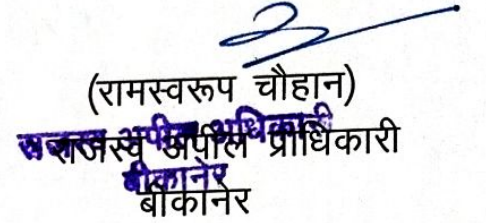 (रामस्वरूप चौहान)
राजस्व अपील प्राधिकारी
राजस्व अपील अधिकारी
बीकानेर
बीकानेर